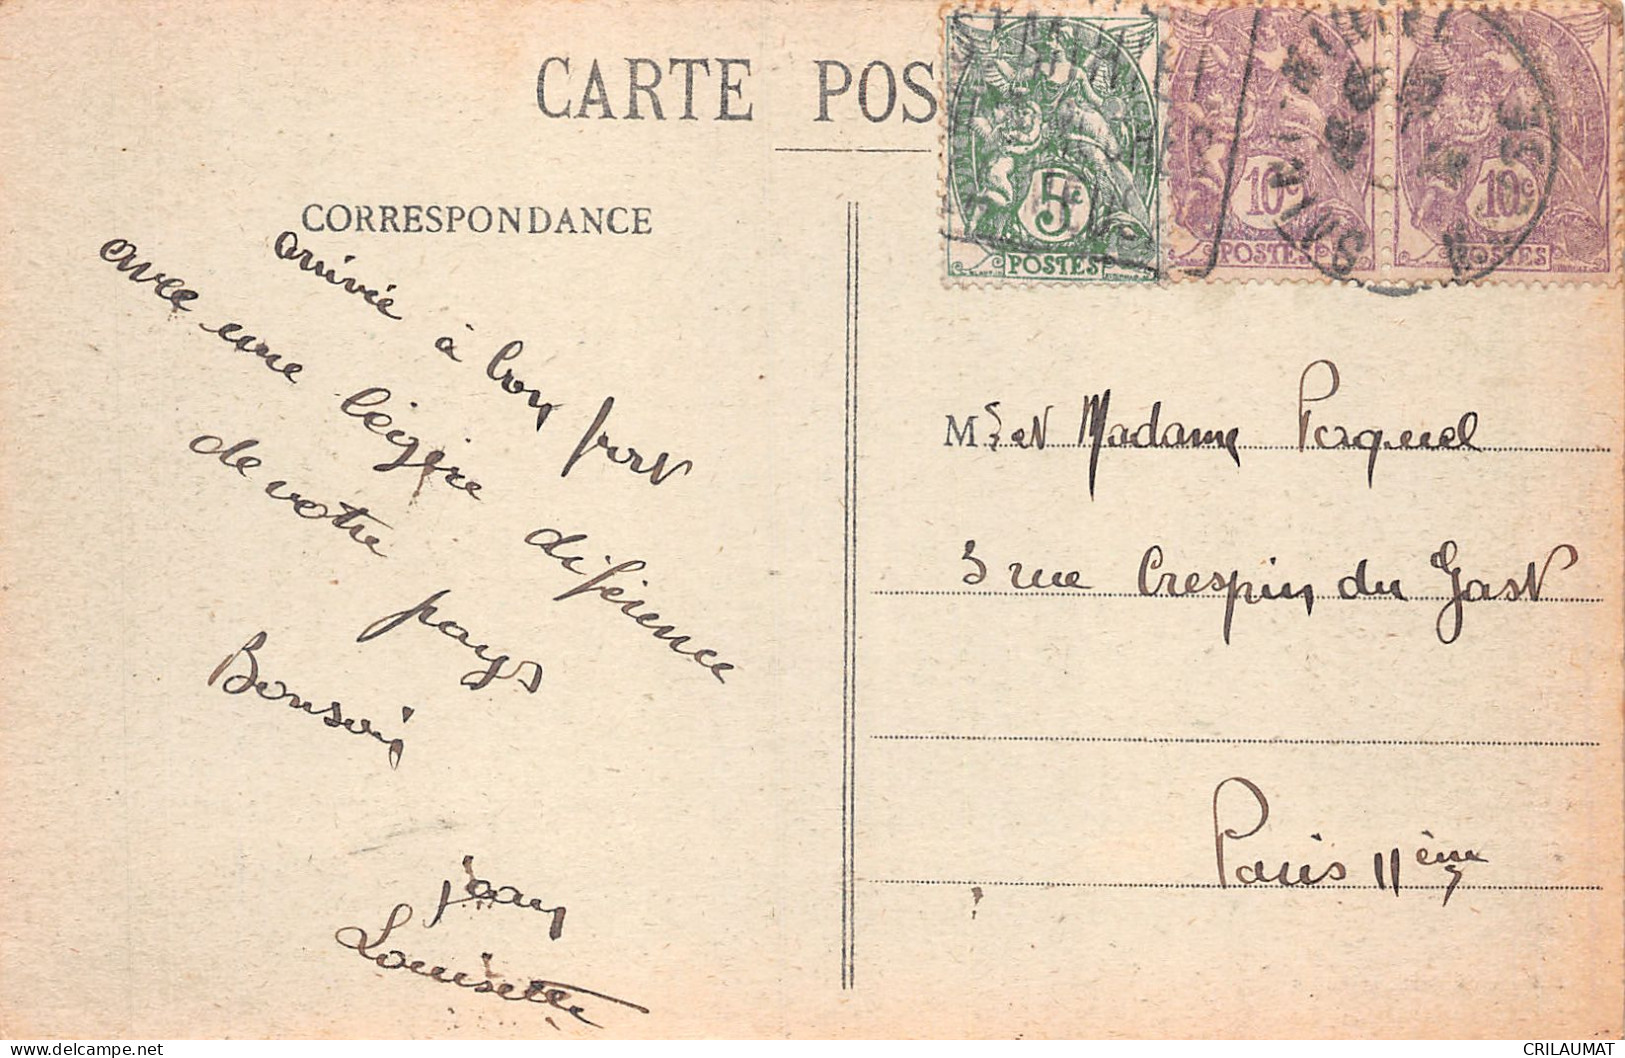 CARTE POS
CORRESPONDANCE
arrivée à bon port
avec une légère diférence
de votre pays
Bonsoir
jean
Louisette
5c
POSTES
10c
POSTES
10c
POSTES
M. et Madame Porquel
3 rue Crespin du Gast
Paris 11ème
CRILAUMAT